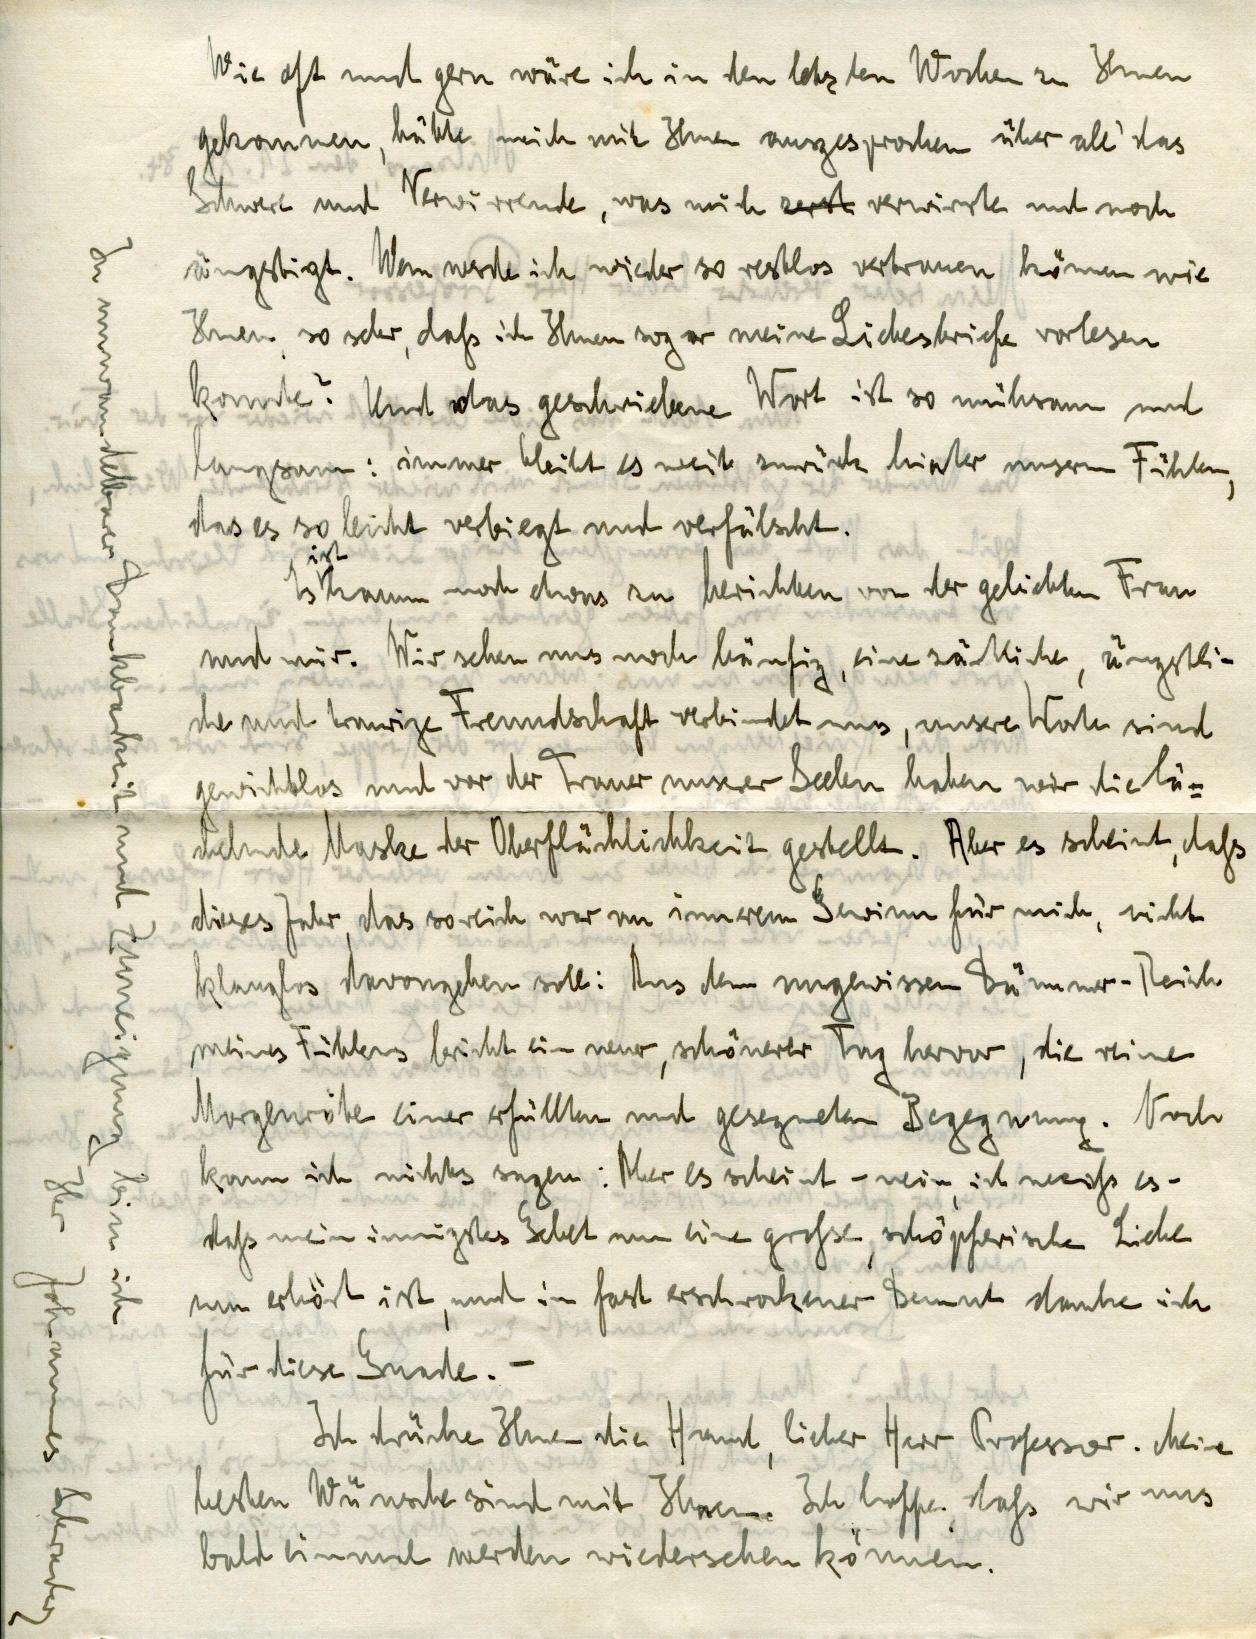 Wie oft und gern wäre ich in den letzten Wochen zu Ihnen
gekommen, hätte mich mit Ihnen ausgesprochen über all' das
Schwere und Verwirrende, was mich verwirrte und noch
ängstigt. Wem werde ich wieder so restlos vertrauen können wie
Ihnen, so sehr, daß ich Ihnen sogar meine Liebesbriefe vorlesen
konnte? Und das geschriebene Wort ist so mühsam und
langsam: immer bleibt es weit zurück hinter unserm Fühlen,
das es so leicht verbiegt und verfälscht.
Es ist kaum noch etwas zu berichten von der geliebten Frau
und mir. Wir sehen uns noch häufig, eine zärtliche, ängstli-
che und traurige Freundschaft verbindet uns, unsere Worte sind
gewichtlos und vor der Trauer unserer Seelen haben wir die lä=
chelnde Maske der Oberflächlichkeit gestellt. Aber es scheint, daß
dieses Jahr, das so reich war an innerem Gewinn für mich, nicht
klanglos davongehen soll: Aus dem ungewissen Dämmer-Reich
meines Fühlens bricht ein neuer, schönerer Tag hervor, die reine
Morgenröte einer erfüllten und gesegneten Begegnung. Noch
kann ich nichts sagen: Aber es scheint - nein, ich weiß es -
daß mein innigstes Gebet um eine große, schöpferische Liebe
nun erhört ist, und in fast erschrockener Demut danke ich
für diese Gnade. -
Ich drücke Ihnen die Hand, lieber Herr Professor. Meine
besten Wünsche sind mit Ihnen. Ich hoffe, daß wir uns
bald einmal werden wiedersehen können.
In unwandelbarer Dankbarkeit und Zuneigung bin ich
Ihr Johannes